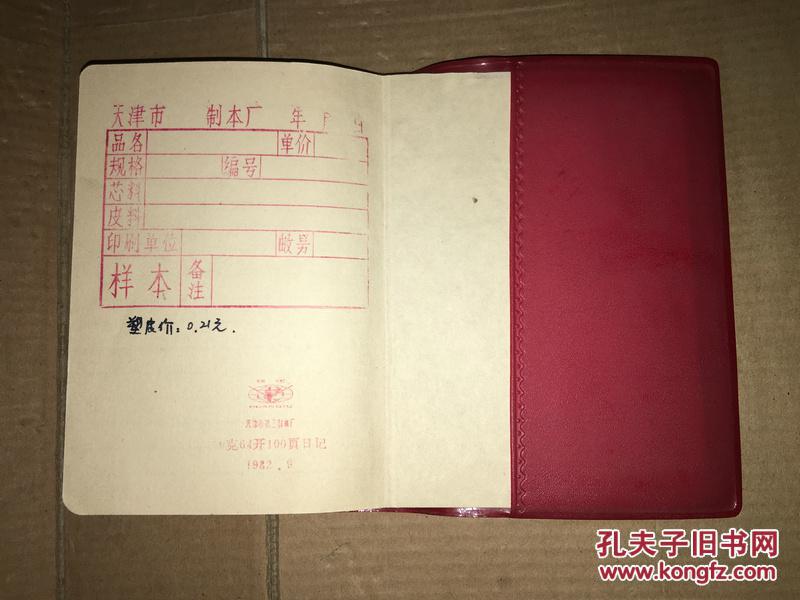 天津市 制本厂 年
品名 单价
规格 编号
芯料
皮料
印刷单位
样本 备注
塑皮价：0.21元.
天津市第三制本厂
克64开100页日记
1982.9
孔夫子旧书网
www.kongfz.com